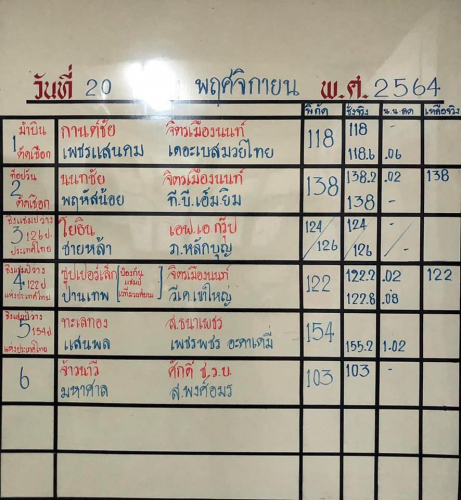 วันที่ 20 พฤศจิกายน พ.ศ. 2564
พิกัด ชั่งจริง น.น.ลด เหลือจริง
ม้าบิน
1
คัดเลือก
กานต์ชัย จิตรเมืองนนท์ 118 118 -
เพชรแสนคม เดอะเบสมวยไทย 118.6 .06
ท็อปวัน
2
คัดเลือก
นนทชัย จิตรเมืองนนท์ 138 138.2 .02 138
พฤหัสน้อย ที.บี.เอ็มยิม 138 -
ชิงแชมป์ว่าง
3 126 ป.
ประเทศไทย
โยธิน เอฟ.เอ.กรุ๊ป 124 124 -
ชายหล้า ภ.หลักบุญ 126 126 -
ชิงแชมป์ว่าง
4 122 ป
แห่งประเทศไทย
ซุปเปอร์เล็ก จิตรเมืองนนท์ 122 122.2 .02 122
ป้องกัน
แชมป์
เวทีมวยสยาม
ปานเทพ วี.เค.เขาใหญ่ 122.8 .08
ชิงแชมป์ว่าง
5 154 ป
แห่งประเทศไทย
ทะเลทอง ส.ธนาเพชร 154
แสนพล เพชรพชร อะคาเดมี่ 155.2 1.02
6
จ้าวนาวี ศักดิ์ ช.ร.บ. 103 103 -
มหาศาล ส.พงศ์อมร